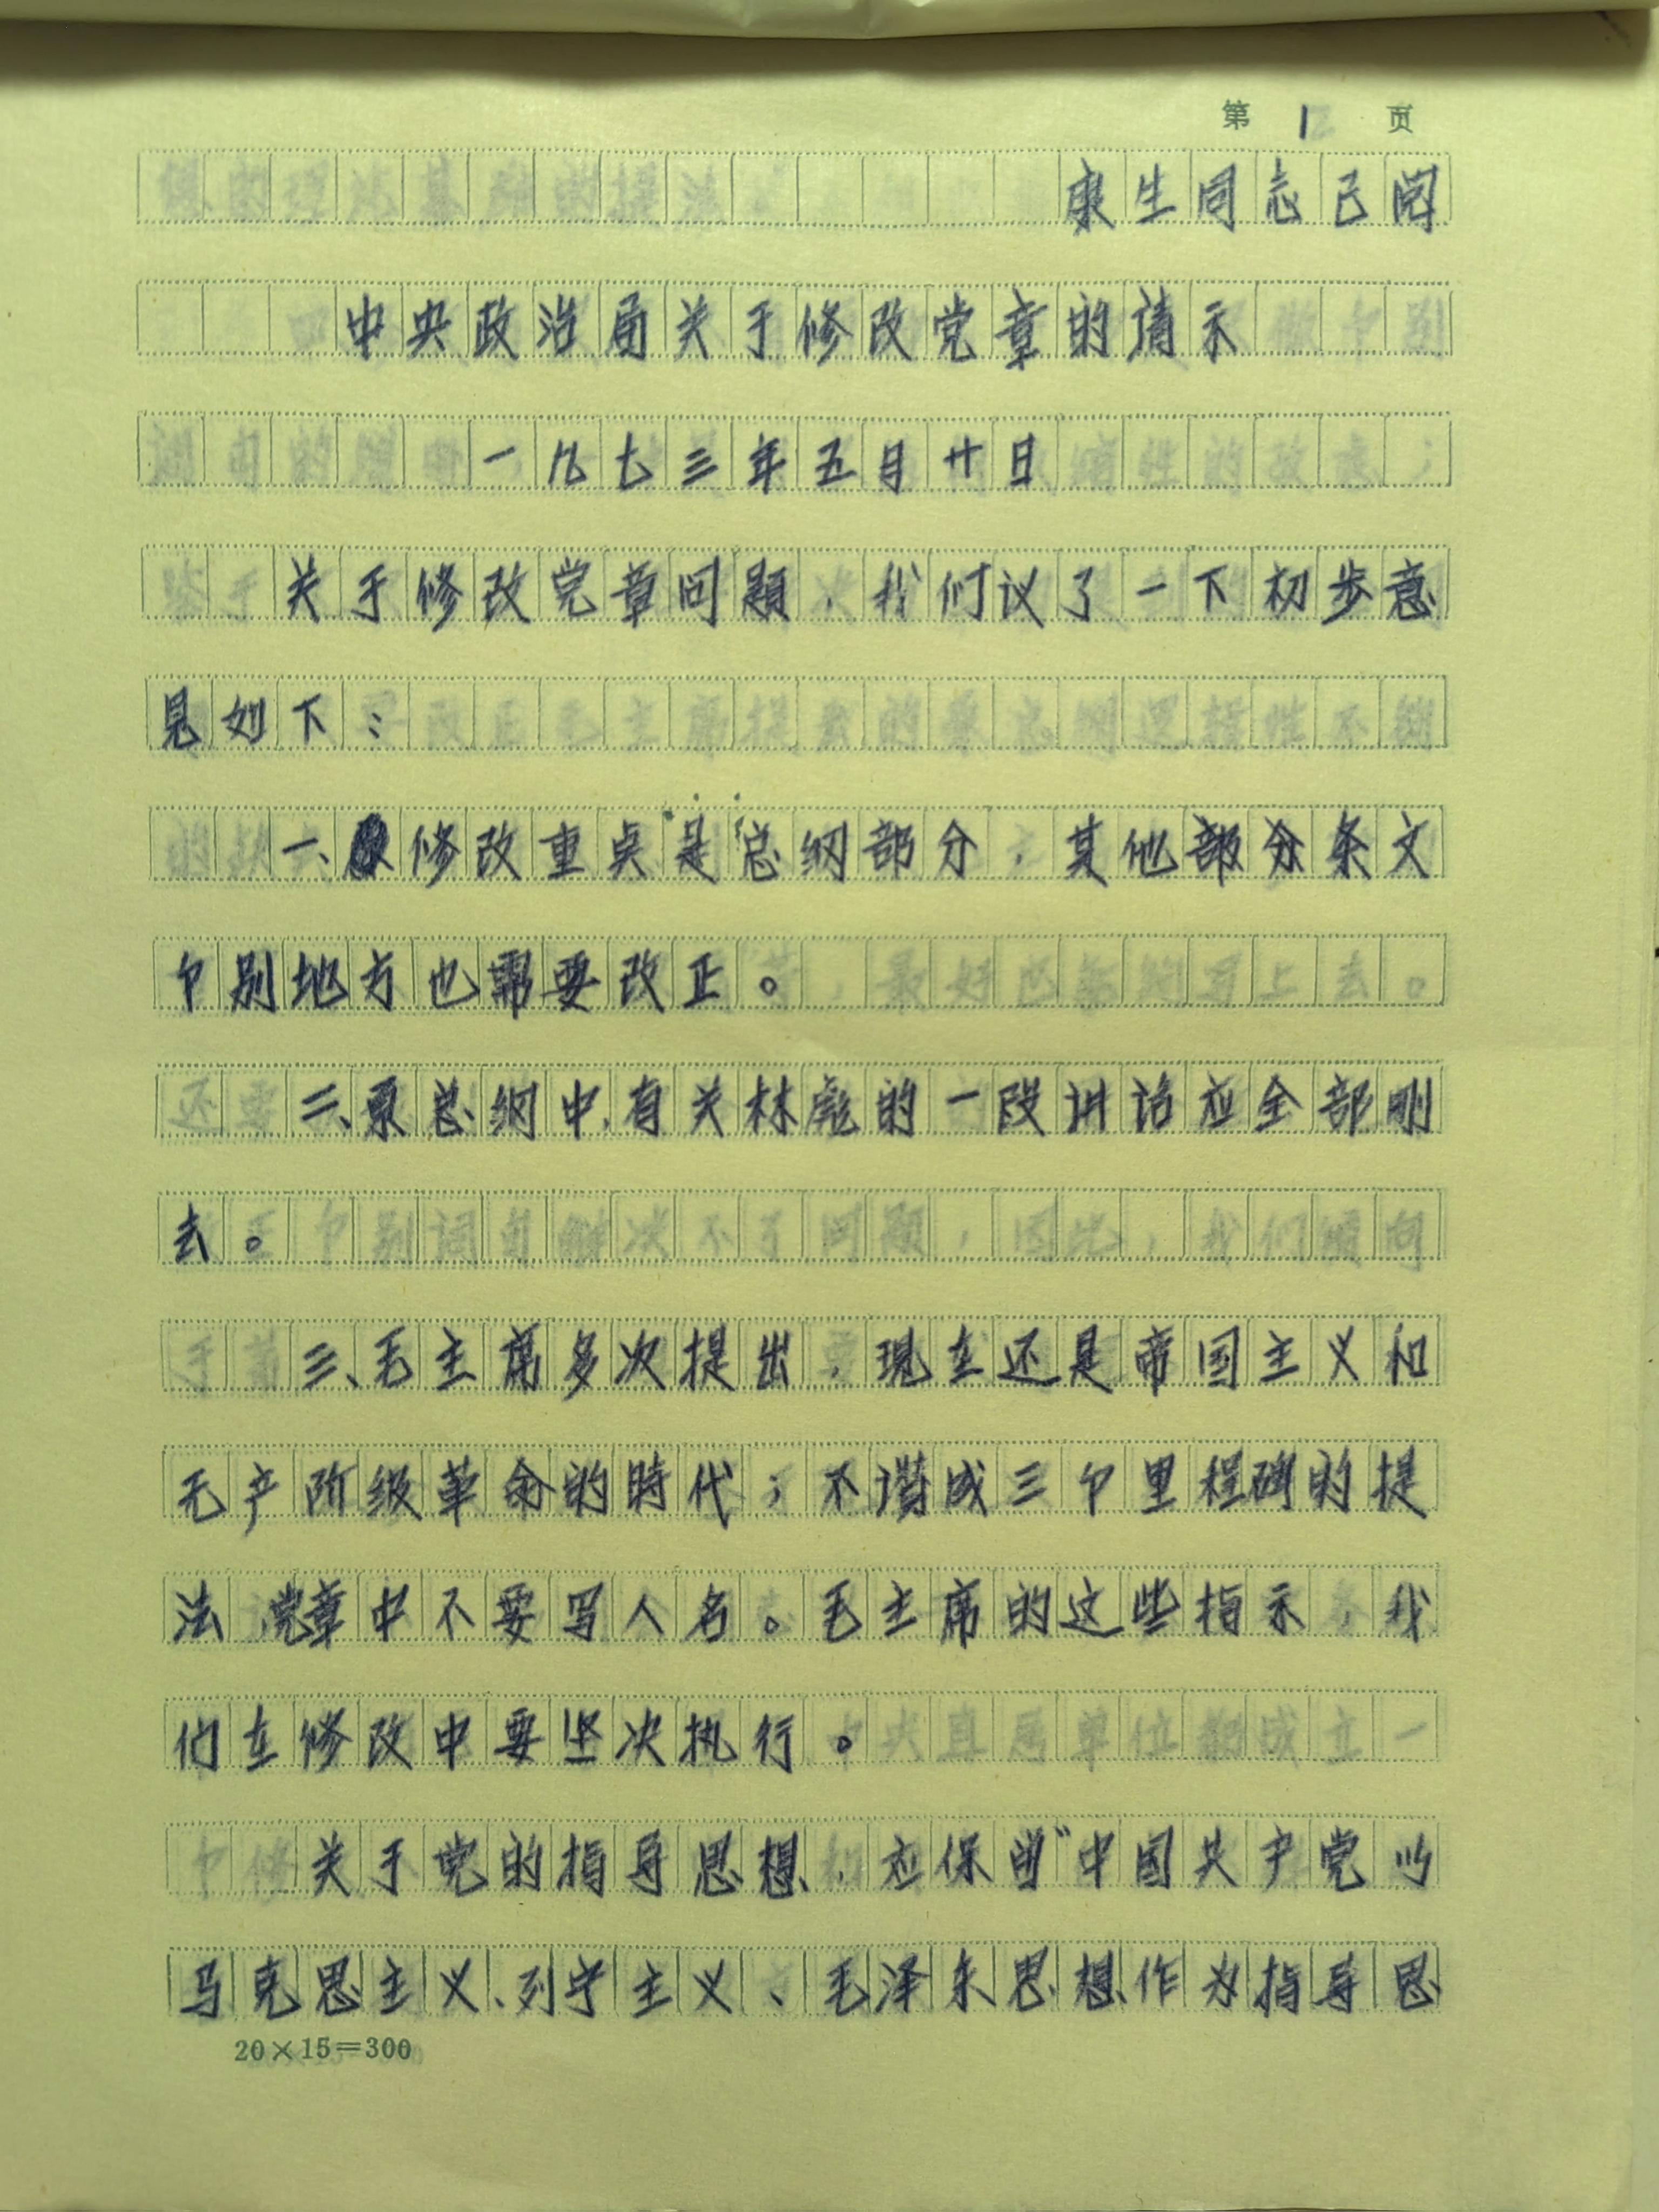 第 1 页
康生同志已阅
中央政治局关于修改党章的请示
一九七三年五月廿日
关于修改党章问题，我们议了一下初步意
见如下：
一、修改重点是总纲部分，其他部分条文
个别地方也需要改正。
二、原总纲中，有关林彪的一段讲话应全部删
去。
三、毛主席多次提出，现在还是帝国主义和
无产阶级革命的時代；不谐成三个里程碑的提
法，党章中不要写人名。毛主席的这些指示，我
们在修改中要坚决执行。
关于党的指导思想，应保留“中国共产党以
马克思主义、列宁主义、毛泽东思想作为指导思
20×15=300